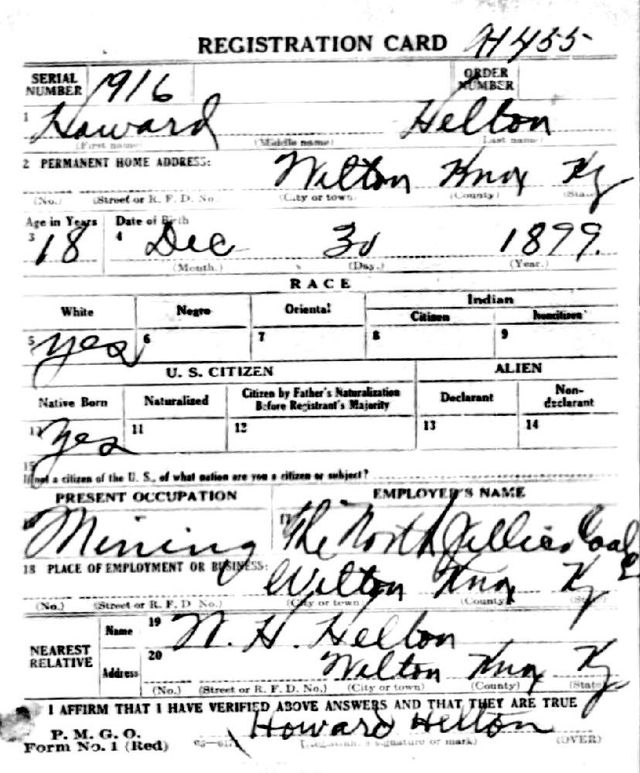 REGISTRATION CARD H455
SERIAL NUMBER 1916 ORDER NUMBER
1 Howard Helton
(First name) (Middle name) Last name)
2 PERMANENT HOME ADDRESS: Wilton Knox Ky
(No.) (Street or R. F. D. No. (City or town) (County) (State)
Age in Years Date of Birth
3 18 4 Dec 30 1899.
(Month.) (Day.) (Year.)
RACE
White Negro Oriental Indian
Citizen Noncitizen
5 yes 6 7 8 9
U. S. CITIZEN ALIEN
Native Born Naturalized Citizen by Father's Naturalization Before Registrant's Majority Declarant Non-declarant
10 Yes 11 12 13 14
15
If not a citizen of the U. S., of what nation are you a citizen or subject?
PRESENT OCCUPATION EMPLOYER'S NAME
16 Mining 17 The North Jellico Coal
18 PLACE OF EMPLOYMENT OR BUSINESS: Wilton Knox Ky
(No.) (Street or R. F. D. No.) (City or town) (County)
NEAREST RELATIVE Name 19 W. H. Helton
Address 20 Wilton Knox Ky
(No.) (Street or R. F. D. No.) (City or town) (County) (State)
I AFFIRM THAT I HAVE VERIFIED ABOVE ANSWERS AND THAT THEY ARE TRUE
P. M. G. O. Howard Helton
Form No. 1 (Red) (Registrant's signature or mark) (OVER)